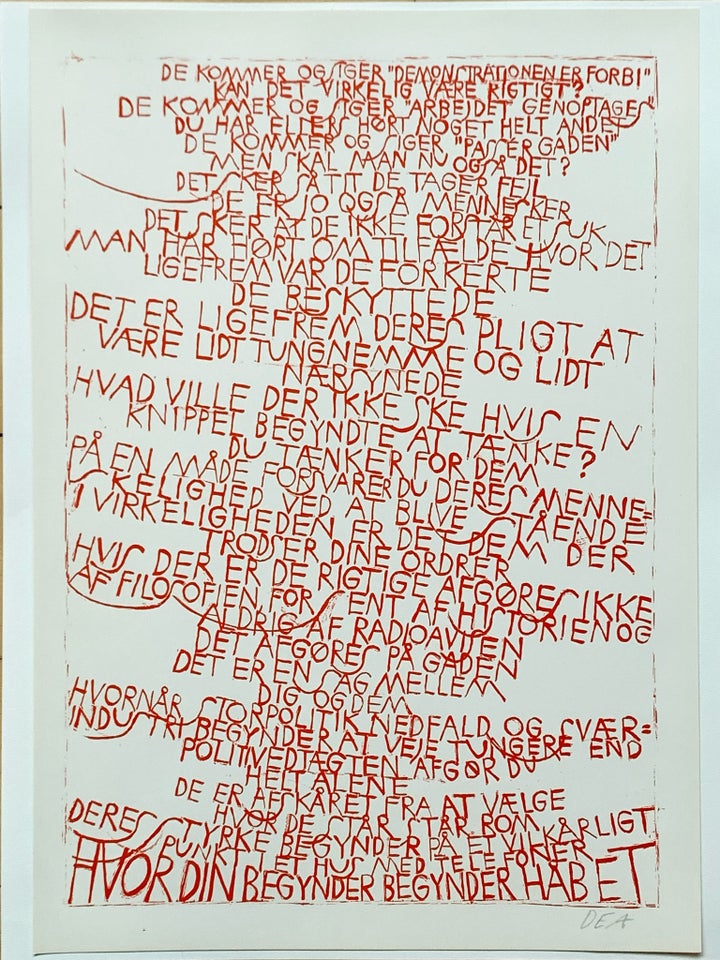 DE KOMMER OG SIGER "DEMONSTRATIONEN ER FORBI"
KAN DET VIRKELIG VÆRE RIGTIGT?
DE KOMMER OG SIGER "ARBEJDET GENOPTAGES"
DU HAR ELLERS HØRT NOGET HELT ANDET
DE KOMMER OG SIGER "PASSÉR GADEN"
MEN SKAL MAN NU OGSÅ DET?
DET SKER SÅ TIT DE TAGER FEJL
DE ER JO OGSÅ MENNESKER
DET SKER AT DE IKKE FORSTÅR ET SUK
MAN HAR HØRT OM TILFÆLDE HVOR DET
LIGEFREM VAR DE FORKERTE
DE BESKYTTEDE
DET ER LIGEFREM DERES PLIGT AT
VÆRE LIDT TUNGNEMME OG LIDT
NÆRSYNEDE
HVAD VILLE DER IKKE SKE HVIS EN
KNIPPEL BEGYNDTE AT TÆNKE?
DU TÆNKER FOR DEM
PÅ EN MÅDE FORSVARER DU DERES MENNE=
SKELIGHED VED AT BLIVE STÅENDE
I VIRKELIGHEDEN ER DET DEM DER
TRODSER DINE ORDRER
HVIS DER ER DE RIGTIGE AFGØRES IKKE
AF FILOSOFIEN FOR ENT AF HISTORIEN OG
ALDRIG AF RADIOAVISEN
DET AFGØRES PÅ GADEN
DET ER EN SAG MELLEM
DIG OG DEM
HVORNÅR STORPOLITIK NEDFALD OG SVÆR=
INDUSTRI BEGYNDER AT VEJE TUNGERE END
POLITIVEDTÆGTEN AFGØR DU
HELT ALENE
DE ER AFSKÅRET FRA AT VÆLGE
HVOR DE STÅR STÅR ROM KÅRLIGT
DERES STYRKE BEGYNDER PÅ ET VIKIER
PUNKT I ET HUS MED TELEFONER
HVOR DIN BEGYNDER BEGYNDER HÅBET
DEA